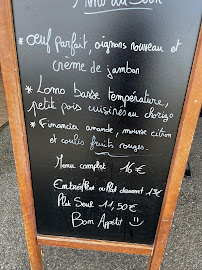 Menu du Soir
* Œuf parfait, oignons nouveau et
crème de jambon
* Lomo basse température,
petit pois cuisinés au chorizo
* Financier amande, mousse citron
et coulis fruits rouges.
Menu complet 16 €
Entrée/Plat ou Plat/dessert 13€
Plat Seul 11,50€
Bon Appétit :)